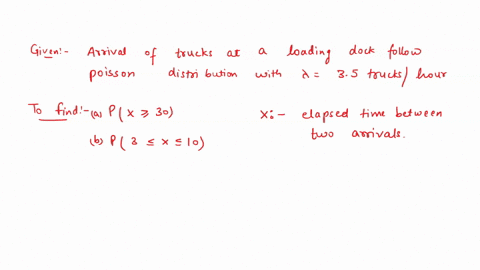 Given:- Arrival of trucks at a loading dock follow
poisson distribution with λ = 3.5 trucks/hour
To find:- (a) P(x ≥ 30)
x:- elapsed time between
two arrivals.
(b) P(3 ≤ x ≤ 10)